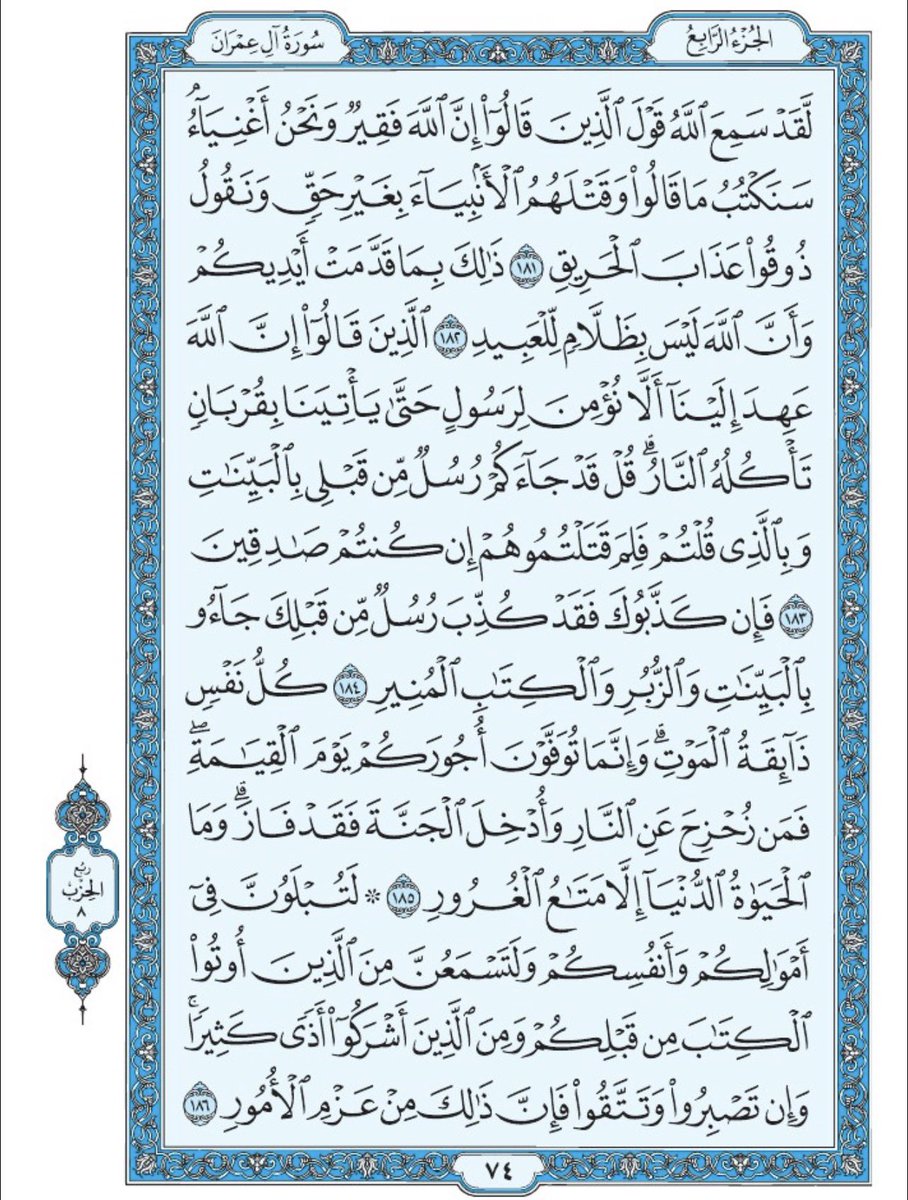 الجُزْءُ الرَّابِعُ
سُورَةُ آلِ عِمْرَانَ
لَّقَدْ سَمِعَ ٱللَّهُ قَوْلَ ٱلَّذِينَ قَالُوٓا۟ إِنَّ ٱللَّهَ فَقِيرٌ وَنَحْنُ أَغْنِيَآءُ ۘ
سَنَكْتُبُ مَا قَالُوا۟ وَقَتْلَهُمُ ٱلْأَنۢبِيَآءَ بِغَيْرِ حَقٍّ وَنَقُولُ
ذُوقُوا۟ عَذَابَ ٱلْحَرِيقِ ١٨١ ذَٰلِكَ بِمَا قَدَّمَتْ أَيْدِيكُمْ
وَأَنَّ ٱللَّهَ لَيْسَ بِظَلَّامٍ لِّلْعَبِيدِ ١٨٢ ٱلَّذِينَ قَالُوٓا۟ إِنَّ ٱللَّهَ
عَهِدَ إِلَيْنَآ أَلَّا نُؤْمِنَ لِرَسُولٍ حَتَّىٰ يَأْتِيَنَا بِقُرْبَانٍ
تَأْكُلُهُ ٱلنَّارُ ۗ قُلْ قَدْ جَآءَكُمْ رُسُلٌ مِّن قَبْلِى بِٱلْبَيِّنَٰتِ
وَبِٱلَّذِى قُلْتُمْ فَلِمَ قَتَلْتُمُوهُمْ إِن كُنتُمْ صَٰدِقِينَ
١٨٣ فَإِن كَذَّبُوكَ فَقَدْ كُذِّبَ رُسُلٌ مِّن قَبْلِكَ جَآءُو
بِٱلْبَيِّنَٰتِ وَٱلزُّبُرِ وَٱلْكِتَٰبِ ٱلْمُنِيرِ ١٨٤ كُلُّ نَفْسٍ
ذَآئِقَةُ ٱلْمَوْتِ ۗ وَإِنَّمَا تُوَفَّوْنَ أُجُورَكُمْ يَوْمَ ٱلْقِيَٰمَةِ ۖ
فَمَن زُحْزِحَ عَنِ ٱلنَّارِ وَأُدْخِلَ ٱلْجَنَّةَ فَقَدْ فَازَ ۗ وَمَا
ٱلْحَيَوٰةُ ٱلدُّنْيَآ إِلَّا مَتَٰعُ ٱلْغُرُورِ ١٨٥ * لَتُبْلَوُنَّ فِىٓ
أَمْوَٰلِكُمْ وَأَنفُسِكُمْ وَلَتَسْمَعُنَّ مِنَ ٱلَّذِينَ أُوتُوا۟
ٱلْكِتَٰبَ مِن قَبْلِكُمْ وَمِنَ ٱلَّذِينَ أَشْرَكُوٓا۟ أَذًى كَثِيرًا ۚ
وَإِن تَصْبِرُوا۟ وَتَتَّقُوا۟ فَإِنَّ ذَٰلِكَ مِنْ عَزْمِ ٱلْأُمُورِ ١٨٦
رُبُع
الحِزْب
٨
٧٤